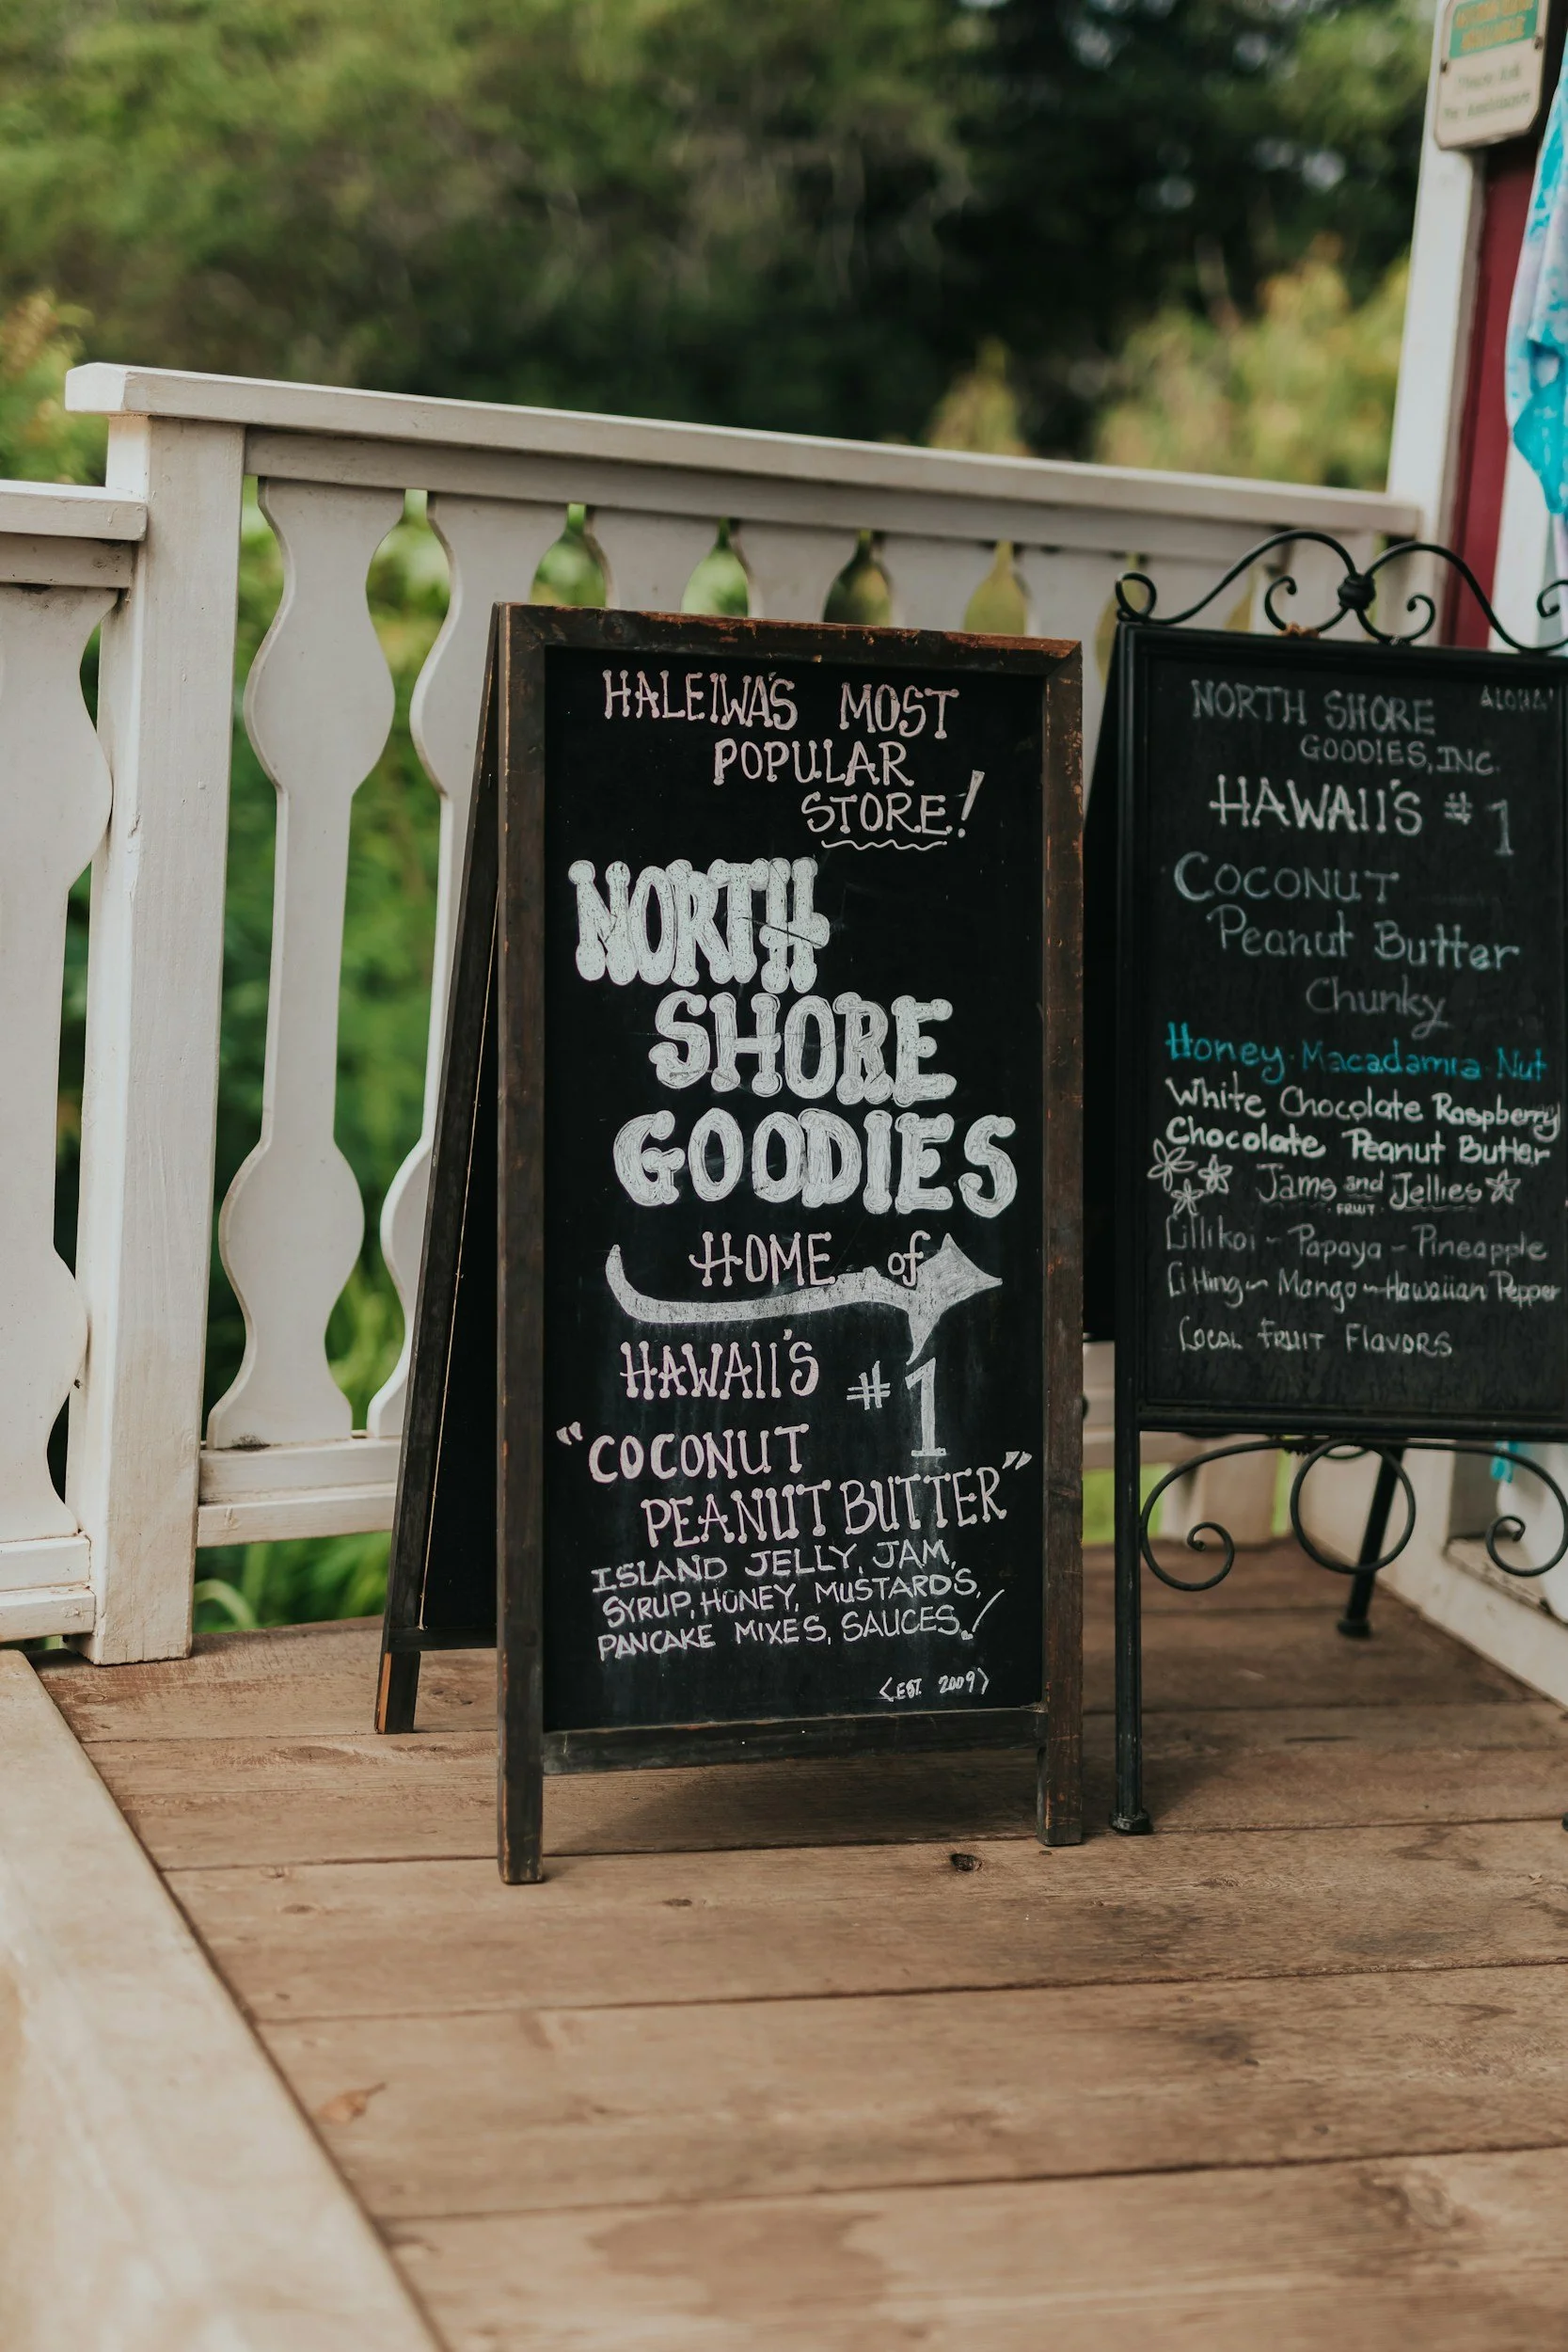 HALEIWA'S MOST
POPULAR
STORE!
NORTH
SHORE
GOODIES
HOME of
HAWAII'S #1
"COCONUT
PEANUT BUTTER"
ISLAND JELLY, JAM,
SYRUP, HONEY, MUSTARDS,
PANCAKE MIXES, SAUCES!
<EST. 2009>
NORTH SHORE ALOHA!
GOODIES, INC.
HAWAII'S #1
COCONUT
Peanut Butter
Chunky
Honey-Macadamia-Nut
White Chocolate Raspberry
Chocolate Peanut Butter
Jams and Jellies
FRUIT
Lillikoi - Papaya - Pineapple
Mango - Hawaiian Pepper
Local Fruit Flavors
Please Ask
For Assistance